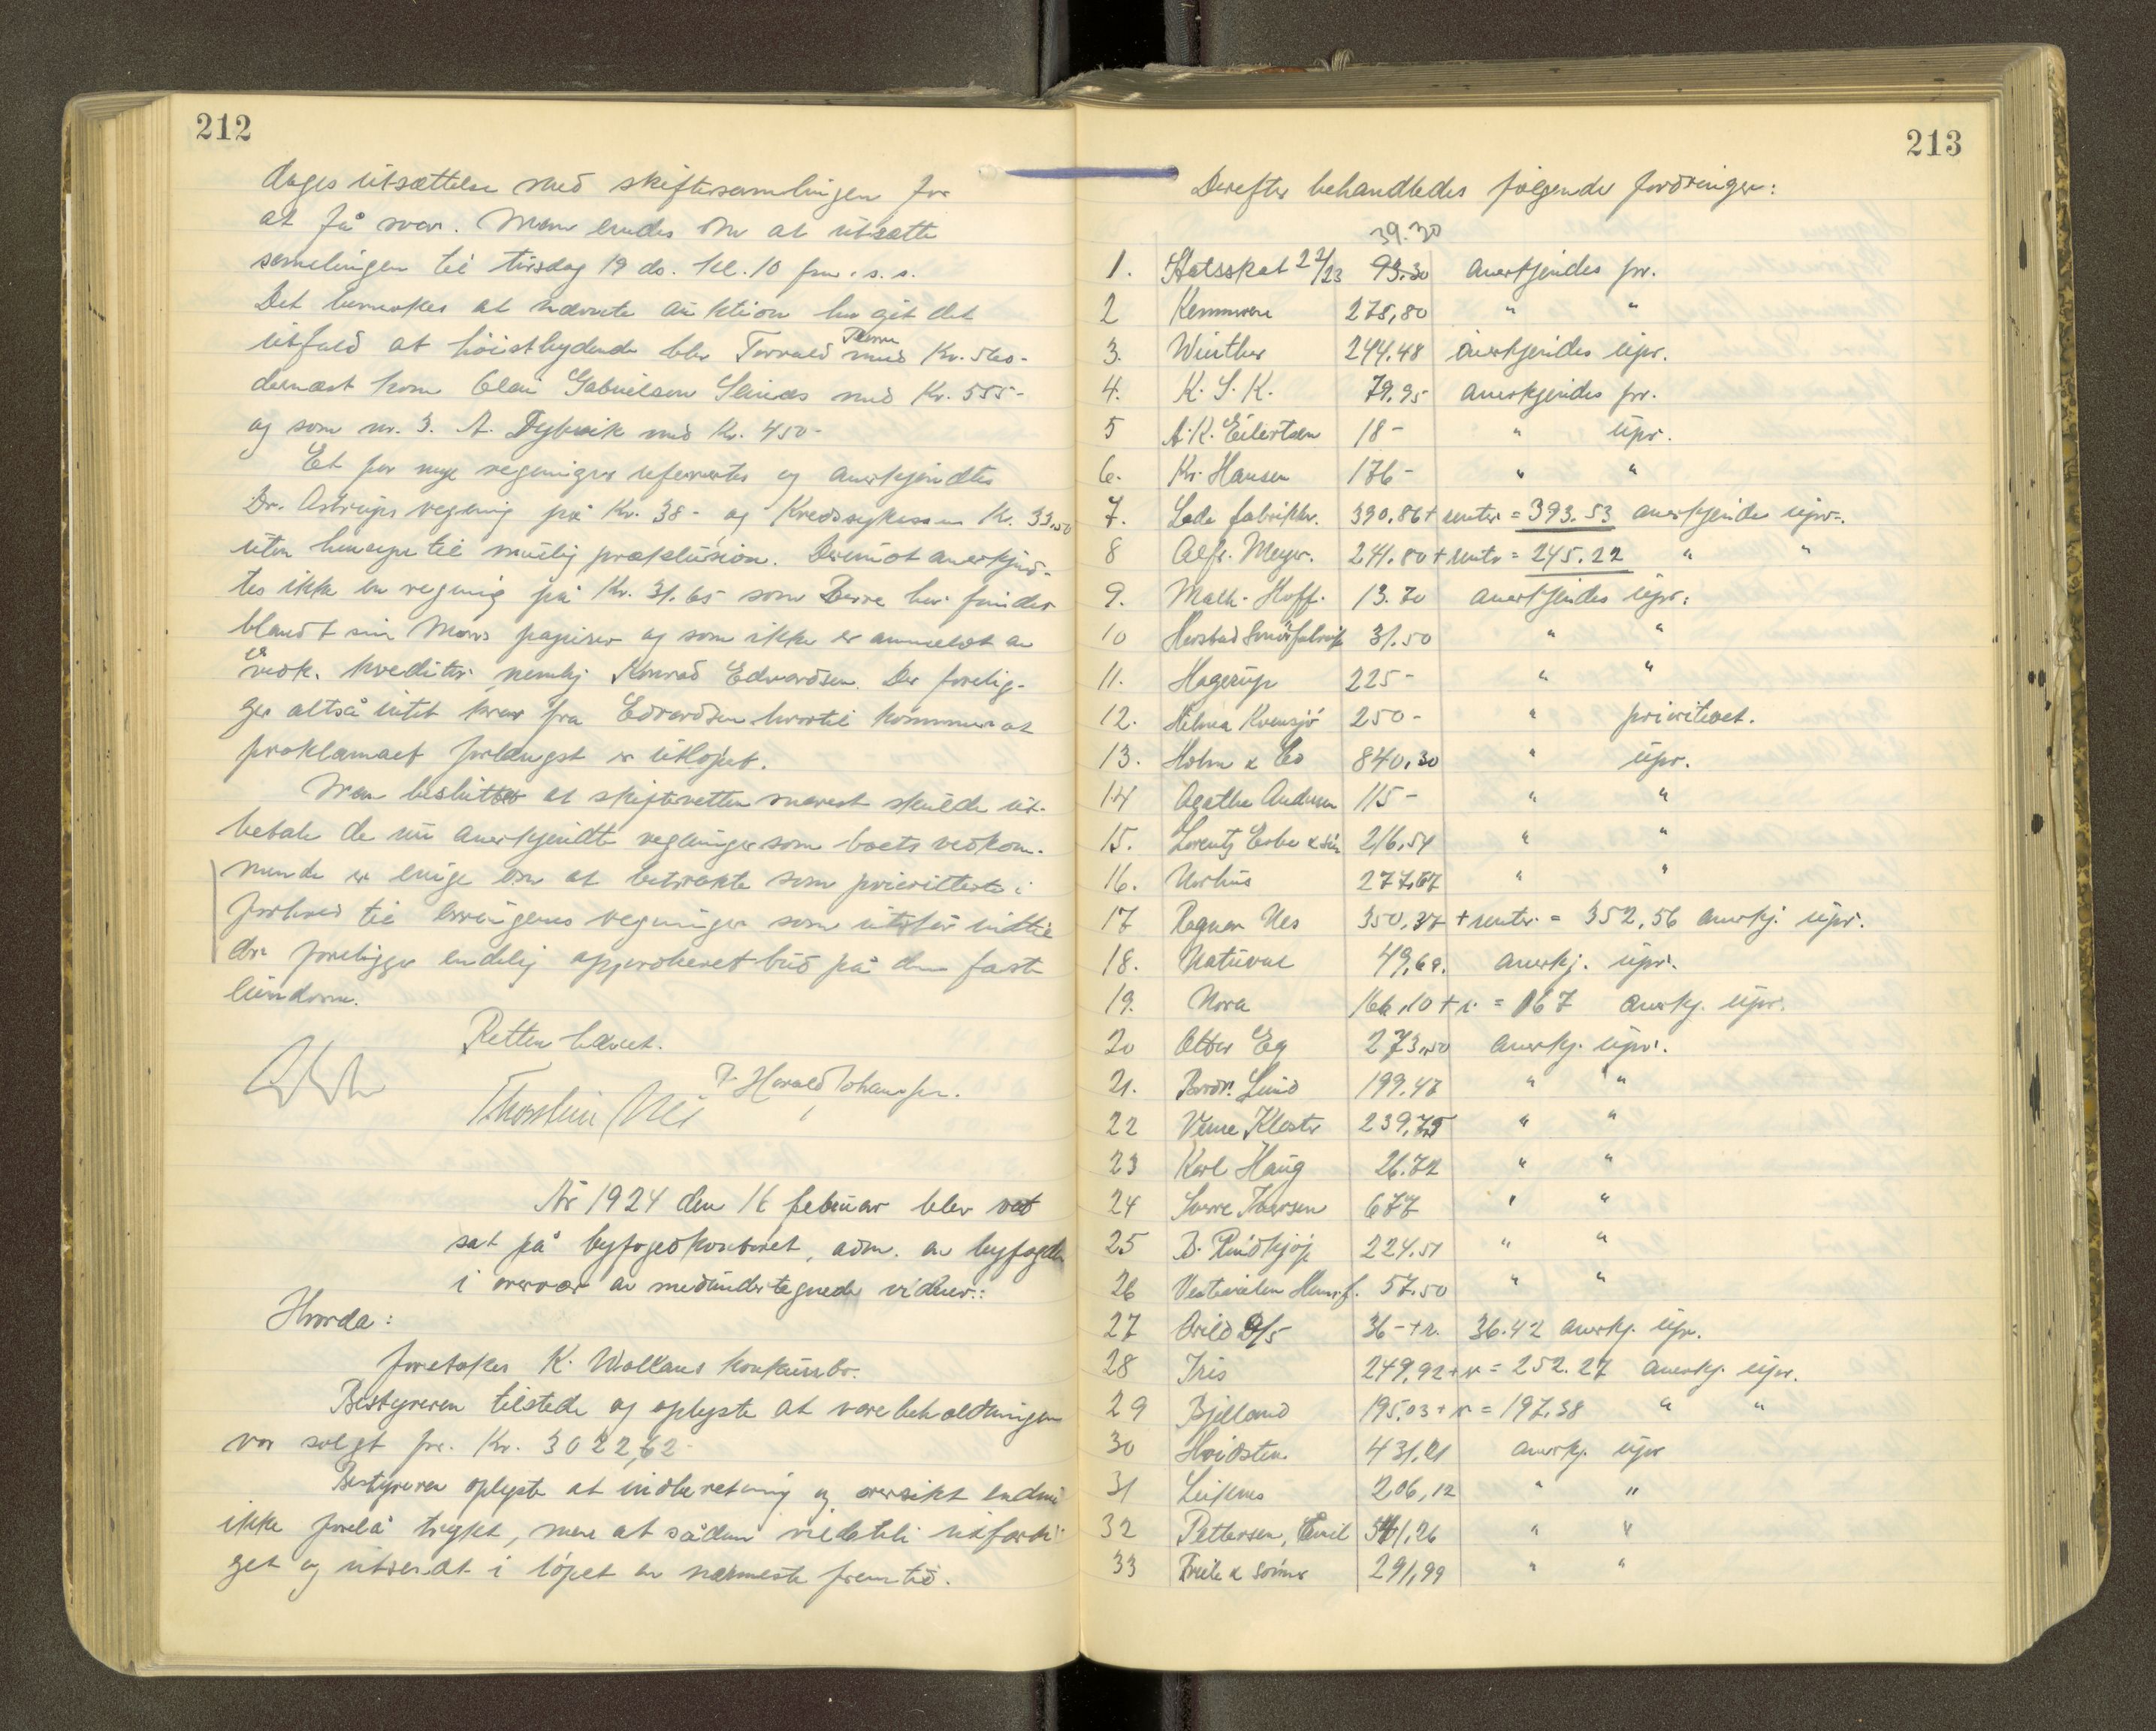 212
dages utsættelse med skiftesamlingen for
at få svar. Man enedes om at utsætte
samlingen til tirsdag 19 ds. kl. 10 fm. s. s.
Det bemerkes at nævnte auktion har git det
utfald at höistbydende blev Torvald Berre med Kr. 560-
dernæst kom Olai Gabrielsen med Kr. 555-
og som nr. 3. A. Dybvik med Kr. 450-
Et par nye regninger refereertes og anerkjendtes
Dr. Astrups regning på Kr. 38- og Kredssykekassen Kr. 33,50
uten hensyn til mulig præklusion. Derimot anerkjend-
tes ikke en regning på Kr. 31.65 som Berre har fundet
blandt sin Mors papirer og som ikke er anmeldt av
vedk. kreditor nemlig Konrad Edvardsen. Der forelig-
ger altså intet krav fra Edvardsen hvortil kommer at
proklamaet forlængst er utlöpet.
Man besluttet at skifteretten snarest skulde ut-
betale de nu anerkjendte regninger som boets vedkom-
mende er enige om at betrakte som prioriterte i
forhold til arvingenes regninger som utstår indtil
der foreligger endelig approberet bud på den faste
eiendom.
Retten hævet.
Harald Johansen.
Thorstein Nes
År 1924 den 16 februar blev ret
sat på byfogedkontoret, adm. av byfogden
i overvær av medundertegnede vidner:
Hvorda:
foretokes K. Wollans konkursbo.
Bestyreren tilstede og oplyste at varebeholdningen
var solgt for Kr. 3022,62-
Bestyreren oplyste at indberetning og oversikt endnu
ikke forelå trykt, men at sådan vilde bli utfærdi-
get og utsendt i löpet av nærmeste fremtid.
213
Derefter behandledes følgende fordringer:
39.30
1. Statsskat 22/23 93.30 anerkjendes pr.
2 Kemneren 278,80 " "
3. Winther 244.48 anerkjendes upr.
4. K. S. K. 79.95 anerkjendes pr.
5 A. K. Eilertsen 18- " upr.
6. Kr. Hansen 176- " "
7. Lade fabrikker. 390.86 + renter = 393.53 anerkjendes upr.
8 Alfr. Meyer. 241.80 + renter = 245.22 " "
9. Math. Hoff. 13.70 anerkjendes upr.
10 Smörfabrik 31.50 " "
11. Hagerup 225- " "
12. Helma 250- " prioriteret.
13. Holm & Co 840,30 " upr.
14 Agathe Andersen 115- " "
15. Lorentz Erbe & sön 216,54 " "
16. Norhus 277,67 " "
17 Ragnar Nes 350,37 + renter = 352,56 anerkj. upr.
18. Naturvne 49,69. anerkj. upr.
19. Nora 166,10 + r. = 167 anerkj. upr.
20 Otter Eg 273,50 anerkj. upr.
21. Brödr. Lund 199.47 " "
22 Verne Kloster 239,75 " "
23 Karl Haug 26.72 " "
24 Sverre Iversen 677 " "
25 B. Rödkjöp 224.51 " "
26 Vesteraalen Herm.f. 57.50 " "
27 Arild A/S 36- + r. 36.42 anerkj. upr.
28 Iris 249,92 + r = 252.27 anerkj. upr.
29 Bjelland 195,03 + r = 197,38 " "
30 Hvidsten 431,21 anerkj. upr
31 Leiknes 206,12 " "
32 Pettersen, Emil 341,26 " "
33 Friele & sönner 291,99 " "